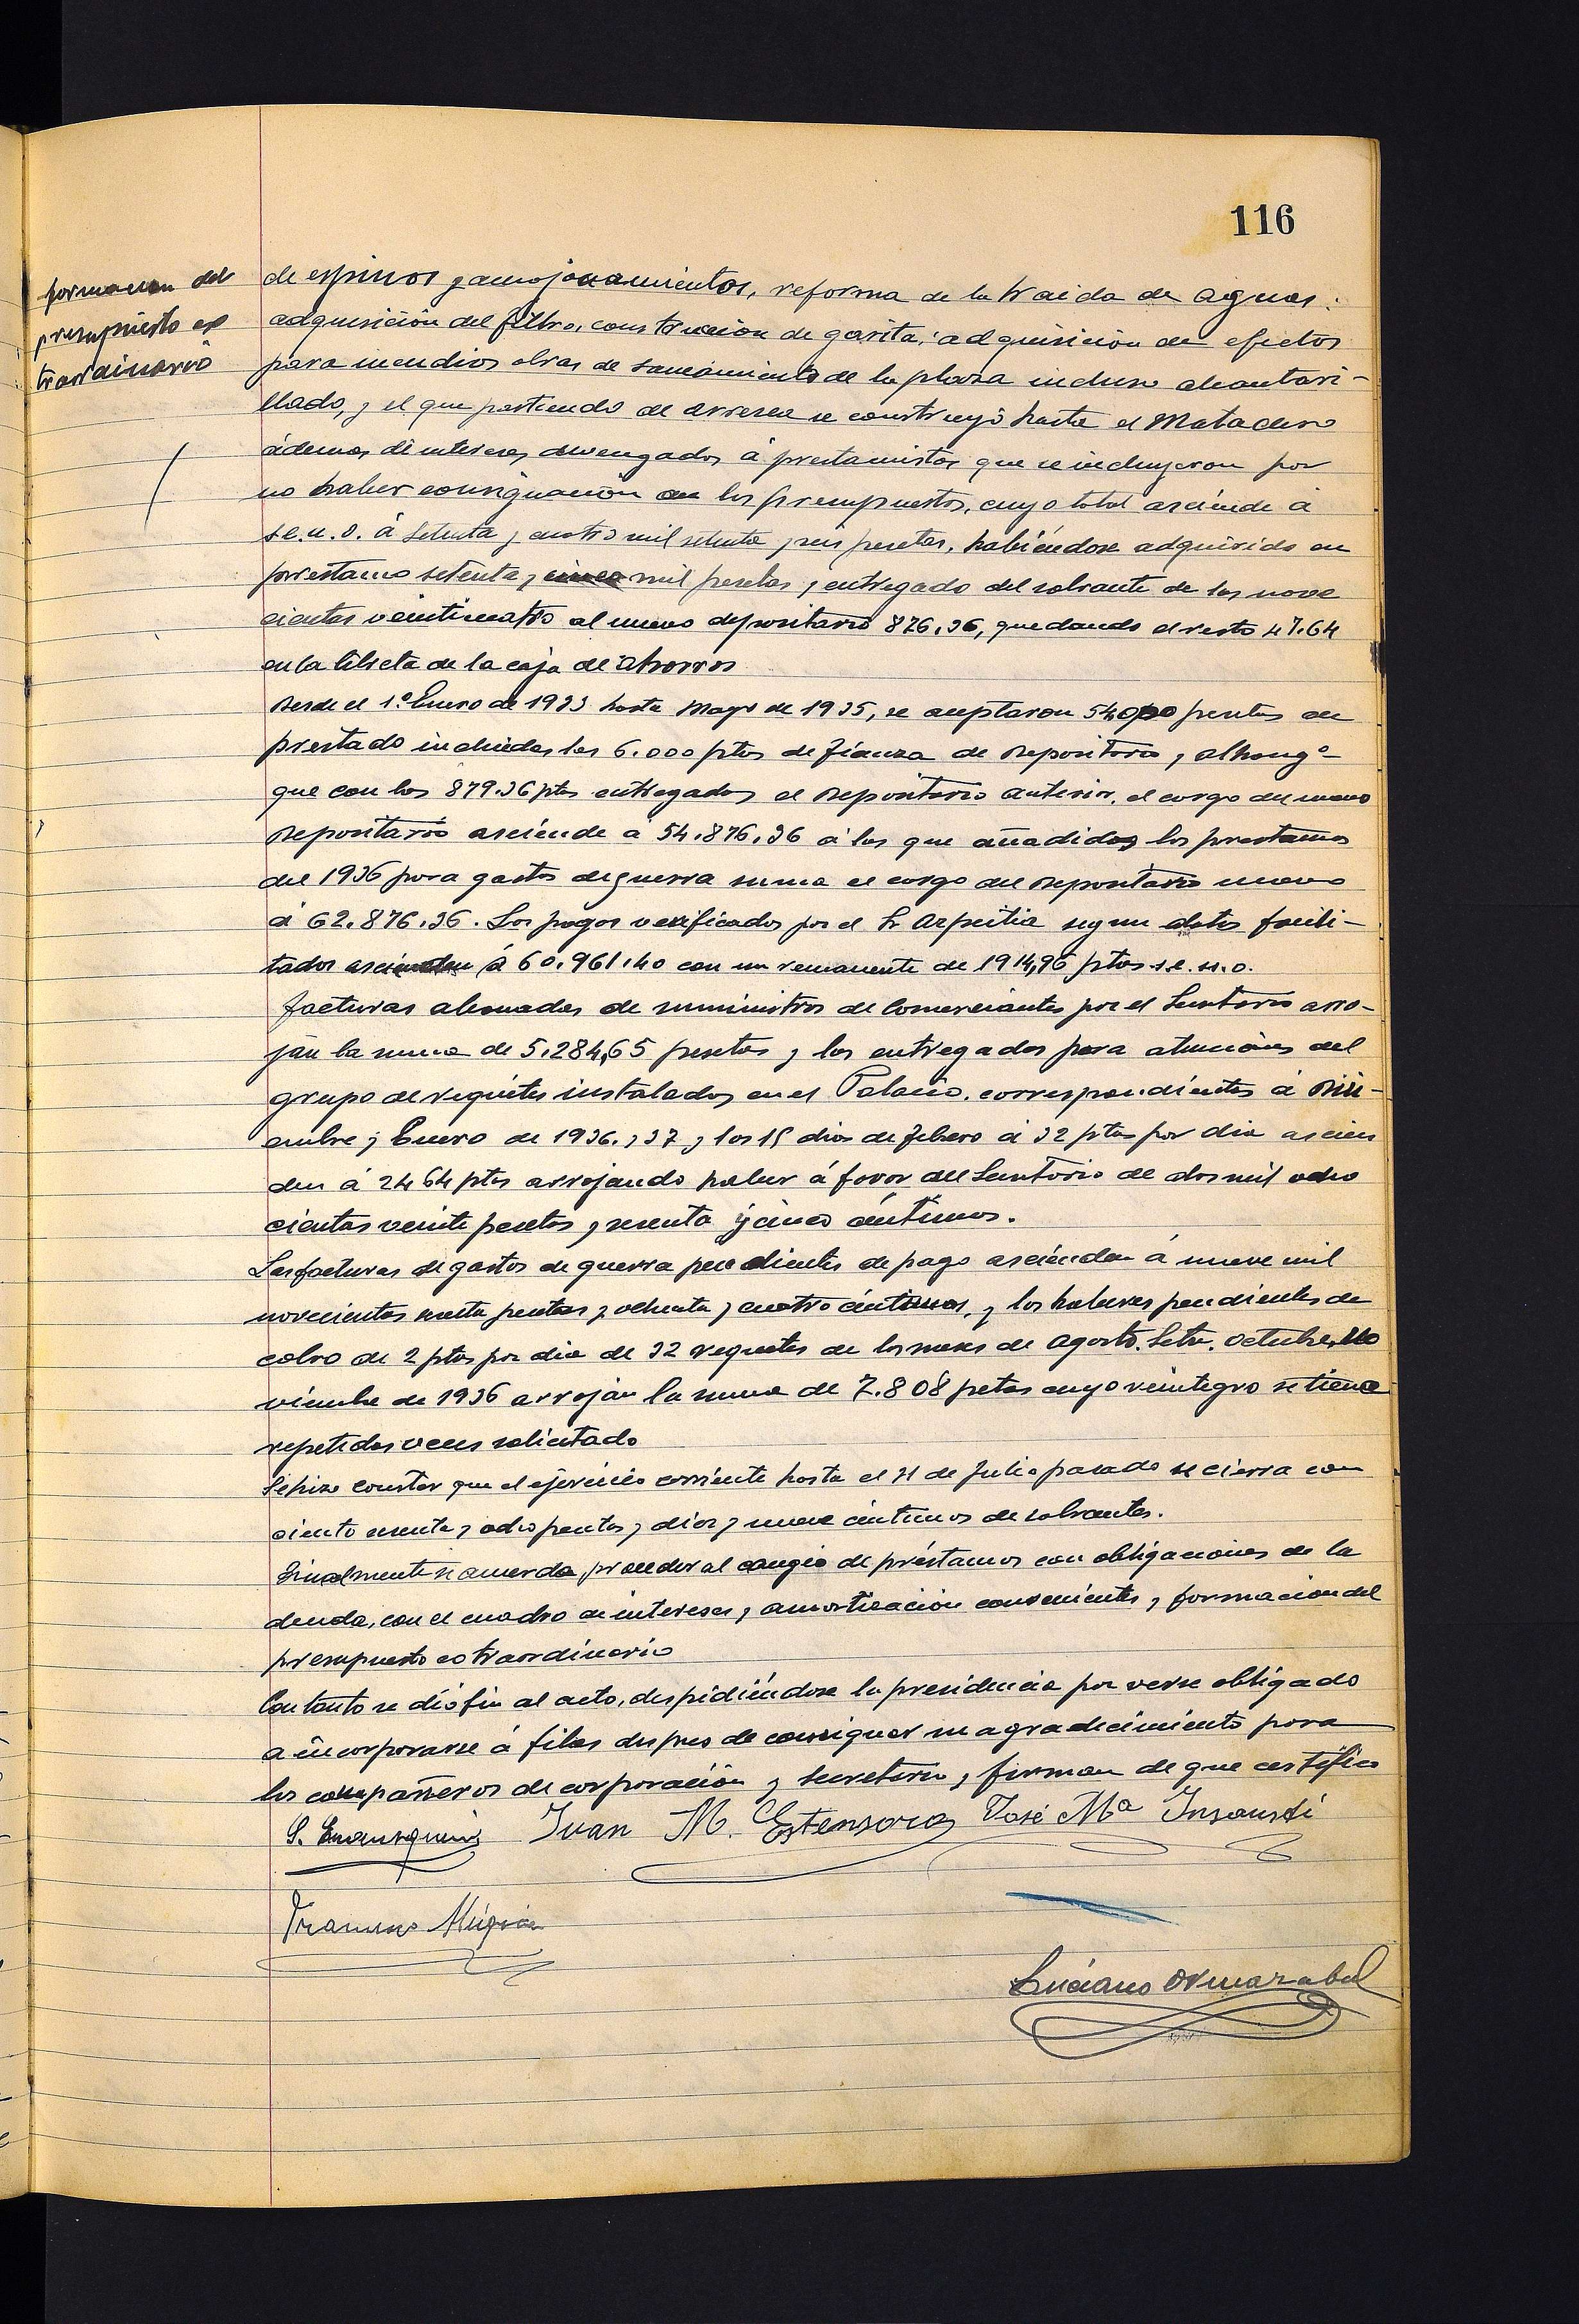 116
formacion del
presupuesto ex
traordinario
de espinos y amojonamientos, reforma de la traida de aguas.
adquisición del filtro, construccion de garita, adquisicion de efectos
para incendios obras de saneamiento de la plaza incluso alcantari-
llado, y el que partiendo de arresea se construyó hasta el Matadero
ádemas de intereses devengados á prestamistas que se incluyeron por
no haber consignación en los presupuestos, cuyo total asciende á
s.e.u.o. á setenta y cuatro mil setenta y seis pesetas, habiéndose adquirido en
prestamo setenta y cinco mil pesetas y entregado del sobrante de las nove
cientas veinticuatro al nuevo depositario 876,36, quedando el resto 47.64
en la libreta de la caja de Ahorros
Desde el 1º Enero de 1933 hasta Mayo de 1935, se aceptaron 54000 pesetas en
prestado incluidas las 6.000 ptas de fianza de Depositario y
que con las 879.36 ptas entregadas el Depositario anterior, el cargo del nuevo
Depositario asciende a 54.876,36 á las que añadidos los prestamos
del 1936 para gastos de guerra suma el cargo del Depositario nuevo
á 62.876,36. Los pagos verificados por el Sr Azpeitia segun datos facili-
tados ascienden á 60.961,40 con un remanente de 1914,96 ptas s.e.u.o.
facturas abonadas de suministros de Comerciantes por el Santuario arro-
jan la suma de 5,284,65 pesetas y las entregadas para atenciones del
grupo de requetes instalados en el Palacio, correspondientes á Dici-
embre y Enero de 1936, y 37 y los 15 dias de febero á 32 ptas por dia ascien
den á 2464 ptas arrojando haber á favor del Santuario de dos mil ocho
cientas veinte pesetas y sesenta y cinco céntimos.
Las facturas de gastos de guerra pendientes de pago ascienden á nueve mil
novecientas pesetas y ochenta y cuatro céntimos, y los haberes pendientes de
cobro de 2 ptas por dia de 32 requetes de los meses de Agosto, Setre, Octubre, No
viembre de 1936 arrojan la suma de 7.808 petas cuyo reintegro se tiene
repetidas veces solicitado
Se hizo constar que el ejercicio corriente hasta el 31 de Julio pasado se cierra con
ciento sesenta y ocho pesetas y diez y nueve céntimos de sobrantes.
Finalmente se acuerda, proceder al cangeo de préstamos con obligaciones de la
deuda, con el cuadro de intereses y amortización convenientes y formacion del
presupuesto extraordinario
Con tanto se dió fin al acto, despidiéndose la presidencia por verse obligado
a incorporarse á filas despues de consignar su agradecimiento para
los compañeros de corporación y secretario, y firman de que certifico
Juan M. Estensoro José Mª Insausti
Francisco Múgica
Luciano Ormazabal